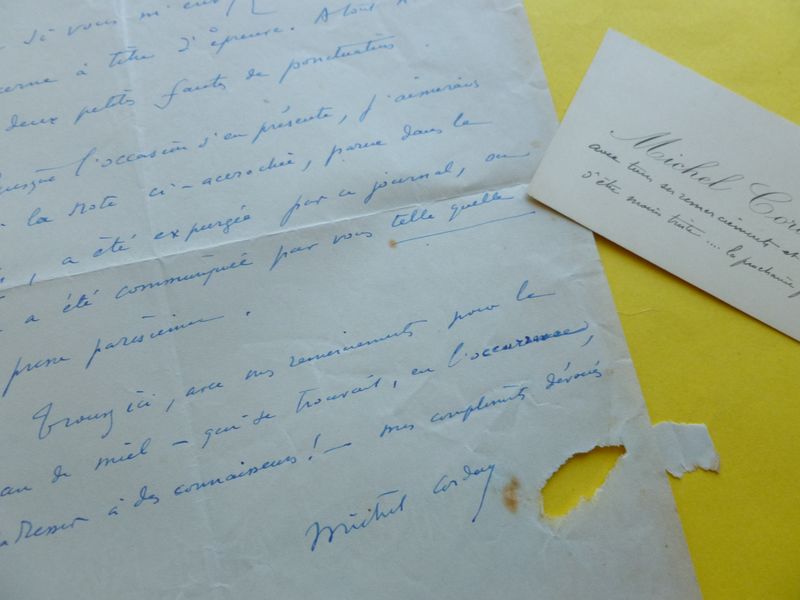 si vous m'envo
à titre d'épreuve. A tout
deux petites fautes de ponctuation.
l'occasion s'en présente, j'aimerais
la note ci-accrochée, parue dans le
, a été expurgée par ce journal, ou
a été communiquée par vous telle quelle
presse parisienne.
Trouvez ici, avec mes remerciements pour le
de miel – qui se trouvait, en l'occurrence,
adresser à des connaisseurs! – mes compliments dévoués
Michel Corday
Michel Cor
avec tous ses remerciements et
d'être moins triste ... la prochaine